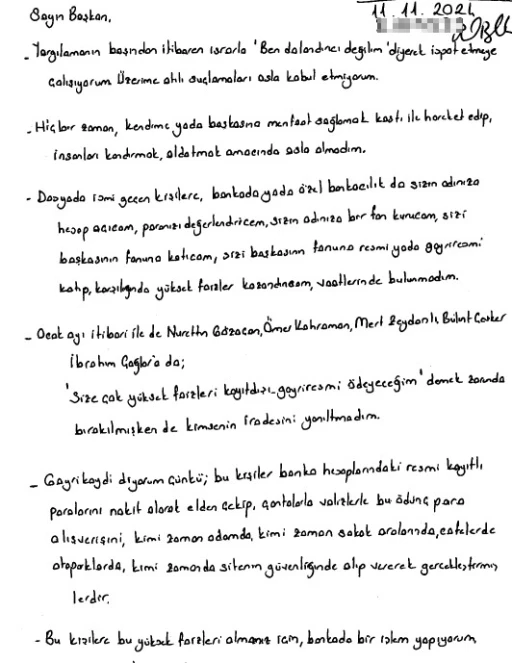 Sayın Başkan,
11.11.2024
- Yargılamanın başından itibaren ısrarla 'Ben dolandırıcı değilim' diyerek ispat etmeye
çalışıyorum Üzerime atılı suçlamaları asla kabul etmiyorum.
- Hiçbir zaman, kendime yada başkasına menfaat sağlamak kastı ile hareket edip,
insanları kandırmak, aldatmak amacında asla olmadım.
- Dosyada ismi geçen kişilere, bankada yada özel bankacılık da sizin adınıza
hesap açıcam, paranızı değerlendiricem, sizin adınıza bir fon kurucam, sizi
başkasının fonuna katıcam, sizi başkasının fonuna resmi yada gayriresmi
katıp, karşılığında yüksek faizler kazandırıcam, vaatlerinde bulunmadım.
- Ocak ayı itibari ile de Nurettin Gözacan, Ömer Kahraman, Mert Zeydanlı, Bülent
İbrahim Çağlar'a da;
'Size çok yüksek faizleri kayıtdışı-gayriresmi ödeyeceğim' demek zorunda
bırakılmışken de kimsenin iradesini yanıltmadım.
- Gayrikaydi diyorum çünkü; bu kişiler banka hesaplarındaki resmi kayıtlı
paralarını nakit olarak elden çekip, çantalarla valizlerle bu ödünç para
alışverişini, kimi zaman odamda, kimi zaman sokak aralarında, cafelerde
otoparklarda, kimi zamanda sitenin güvenliğinde alıp vererek gerçekleştirmiş
lerdir.
- Bu kişilere bu yüksek faizleri almanız için, bankada bir işlem yapıyorum